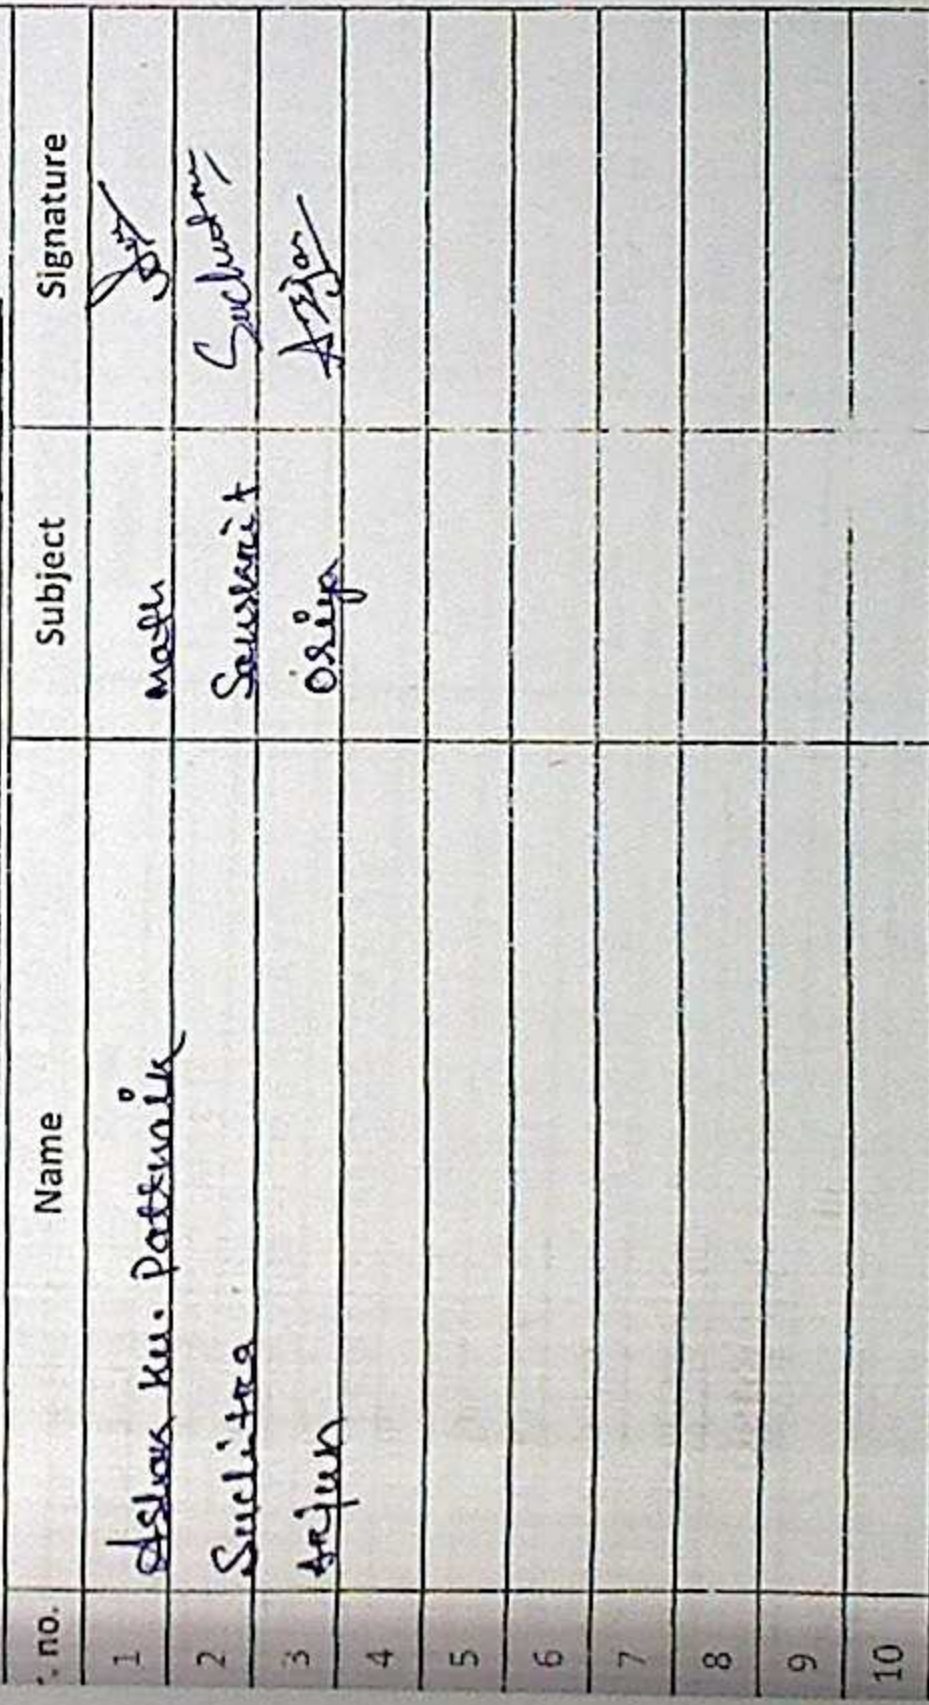 . no. Name Subject Signature
1 Ashok Ku. Pattnaik Math
2 Suchitra Sanskrit
3 Arjun Oriya Arjan
4
5
6
7
8
9
10